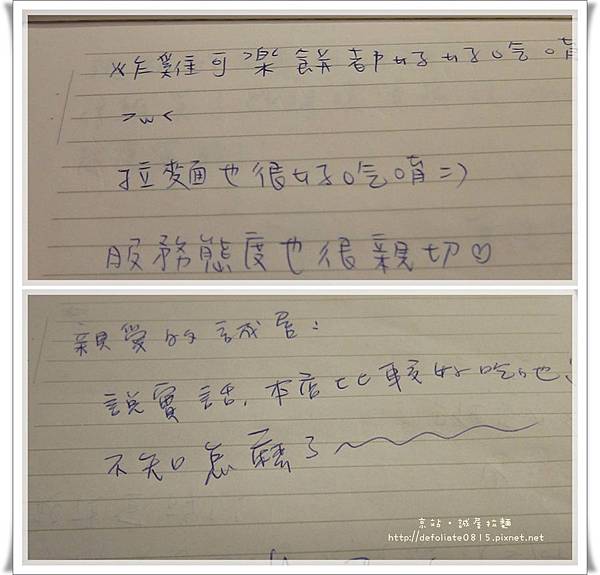 炸雞可樂餅都好好吃唷
>w<
拉麵也很好吃唷=)
服務態度也很親切♡
親愛的誠屋：
說實話，本店比較好吃也！
不知怎麼了～
京站‧誠屋拉麵
http://defoliate0815.pixnet.net